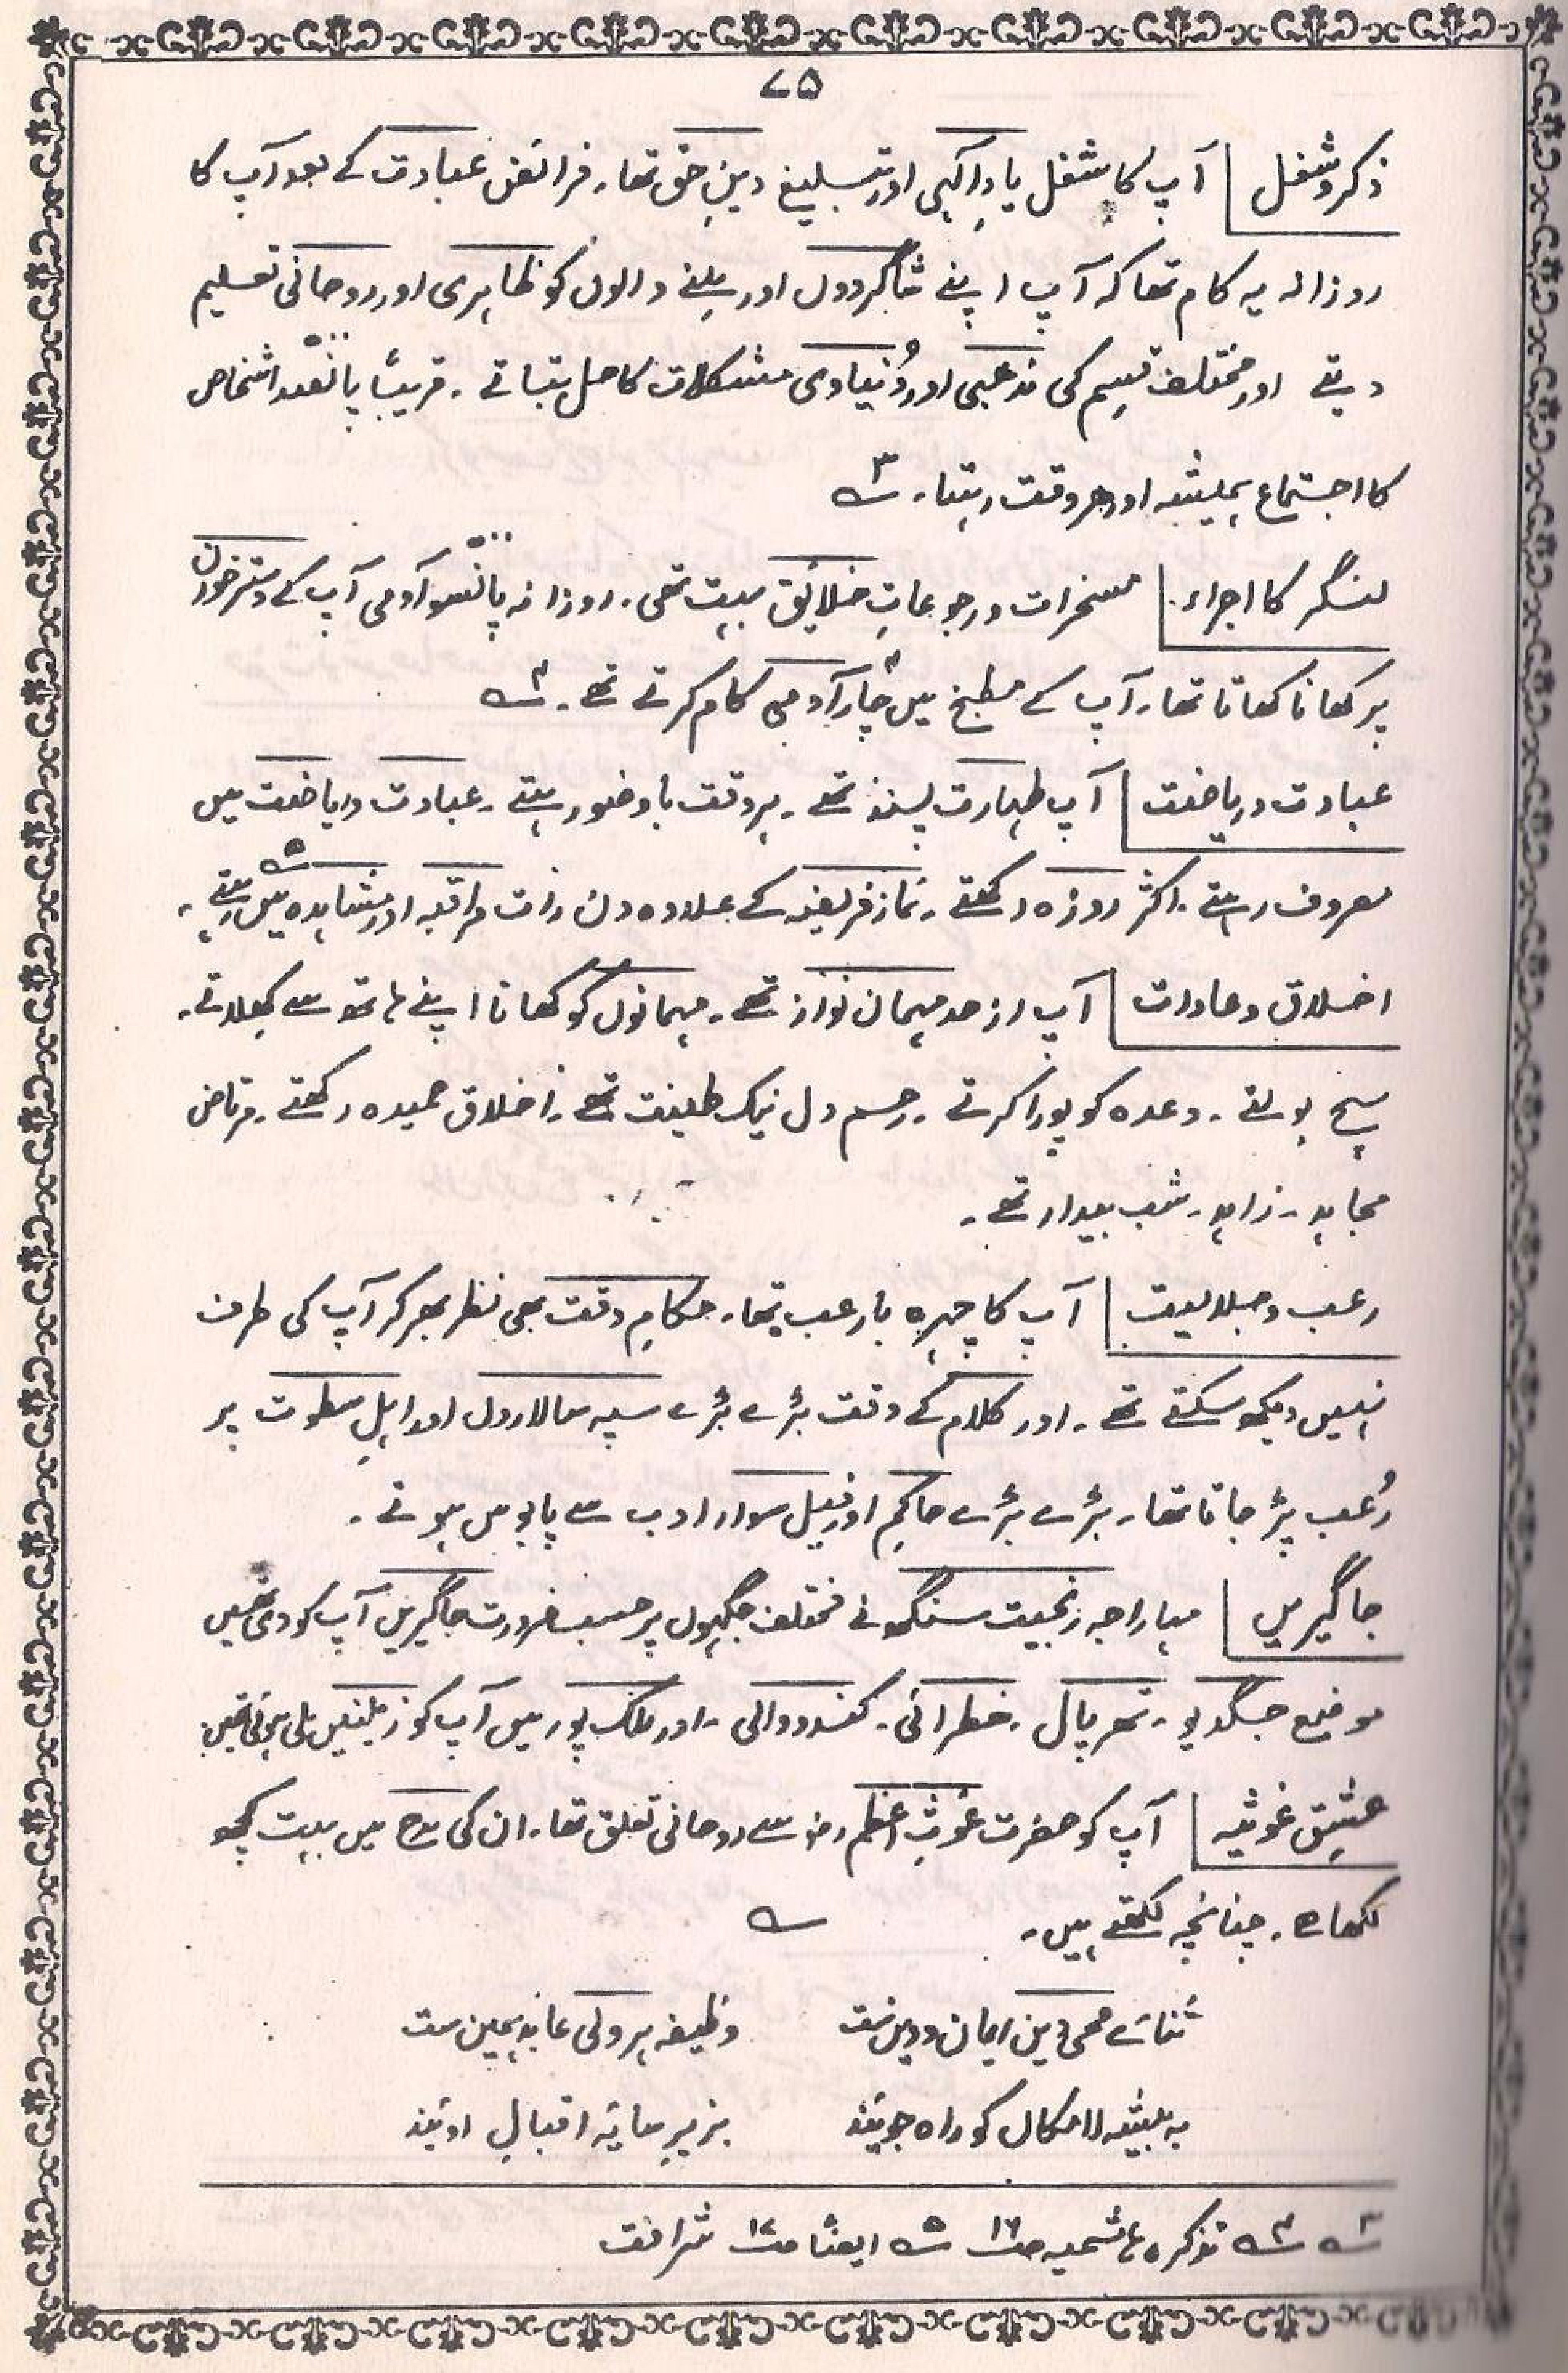 ۷۵
ذکر و شغل آپ کا شغل یادِ الٰہی اور تبلیغ دینِ حق تھا۔ فرائض عبادت کے بعد آپ کا
روزانہ یہ کام تھا کہ آپ اپنے شاگردوں اور ملنے والوں کو ظاہری اور روحانی تعلیم
دیتے اور مختلف قسم کی مذہبی اور دُنیاوی مشکلات کا حل بتاتے۔ قریباً پانصد اشخاص
کا اجتماع ہمیشہ اور ہر وقت رہتا۔ ۳؎
لنگر کا اجراء۔ مسخرات و رجوعاتِ خلایٔق بہت تھی۔ روزانہ پانسو آدمی آپ کے دسترخوان
پر کھانا کھاتا تھا۔ آپ کے مطبخ میں چار آدمی کام کرتے تھے۔ ۴؎
عبادت و ریاضت آپ طہارت پسند تھے۔ ہر وقت باوضور ہتے۔ عبادت و ریاضت میں
مصروف رہتے۔ اکثر روزہ رکھتے۔ نماز فریضہ کے علاوہ دن رات مراقبہ اور مشاہدہ میں رہتے۔ ۵؎
اخلاق و عادات آپ از حد مہمان نواز تھے۔ مہمانوں کو کھانا اپنے ہاتھ سے کھلاتے۔
سچ بولتے۔ وعدہ کو پورا کرتے۔ رحم دل نیک طینت تھے۔ اخلاق حمیدہ رکھتے۔ مرتاض
مجاہد۔ زاہد۔ شب بیدار تھے۔
رعب و جلالیت آپ کا چہرہ بارعب تھا۔ حکامِ وقت بھی نظر بھر کر آپ کی طرف
نہیں دیکھ سکتے تھے۔ اور کلام کے وقت بڑے بڑے سپہ سالاروں اور اہلِ سطوت پر
رُعب پڑ جاتا تھا۔ بڑے بڑے حاکم اور فیل سوار ادب سے پابوس ہوتے۔
جاگیریں مہاراجہ رنجیت سنگھ نے مختلف جگہوں پر حسبِ ضرورت جاگیریں آپ کو دی تھیں
موضع جگدیو۔ تھرپال۔ خطرائی۔ کندووالی۔ اور ملک پور میں آپ کو زمینیں ملی ہوئی تھیں۔
عشقِ غوثیہ آپ کو حضرت غوثِ اعظم رضہ سے روحانی تعلق تھا۔ ان کی مدح میں بہت کچھ
لکھا ہے۔ چنانچہ لکھتے ہیں۔ ؎
ثنائے محی دین ایمان و دین ست وظیفہ ہر ولی عابد ہمین ست
بہ بیشہ لامکاں کو راہ جویند بزیرِ سایٔہ اقبالِ اویند
۳؎ ۴؎ تذکرہ ہاشمیہ صـ۱۶ ۵؎ ایضًا صـ۱۷ شرافت